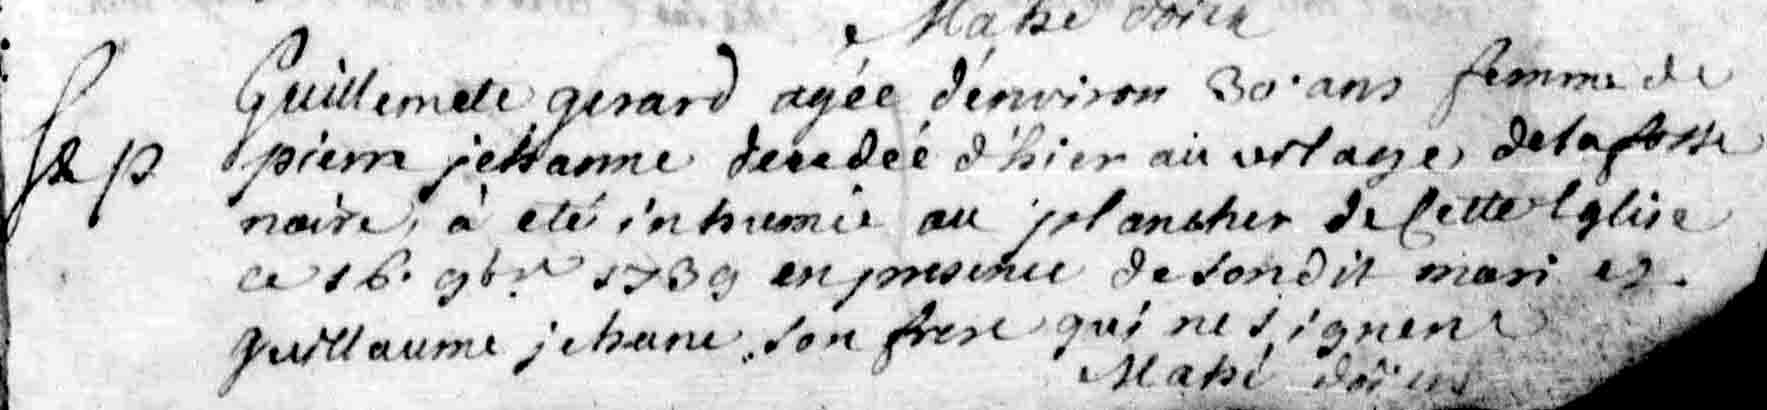 Mahé doien
S de p
Guillemete gerard agée d'énviron 30 ans femme de
pierre jehanne decedéé d'hier au vilage de la fosse
naire, à eté inhumée au plancher de Cette Eglise
ce 16. 9br 1739 en presence de son dit mari et
guillaume jehane son frere qui ne signent
Mahé doien